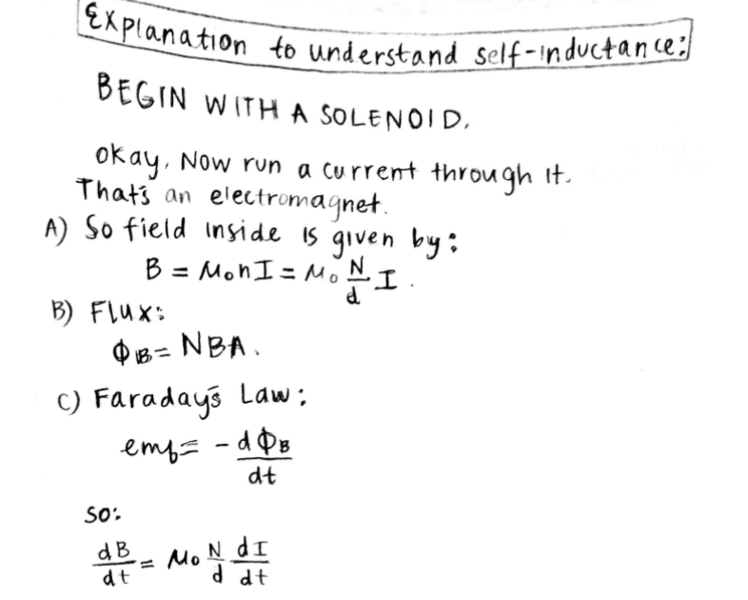 Explanation to understand self-inductance:
BEGIN WITH A SOLENOID.
okay, Now run a current through it.
That's an electromagnet.
A) So field inside is given by:
B = μ₀nI = μ₀ N/d I.
B) Flux:
Φ_B = NBA.
C) Faraday's Law:
emf = - dΦ_B/dt
so:
dB/dt = μ₀ N/d dI/dt